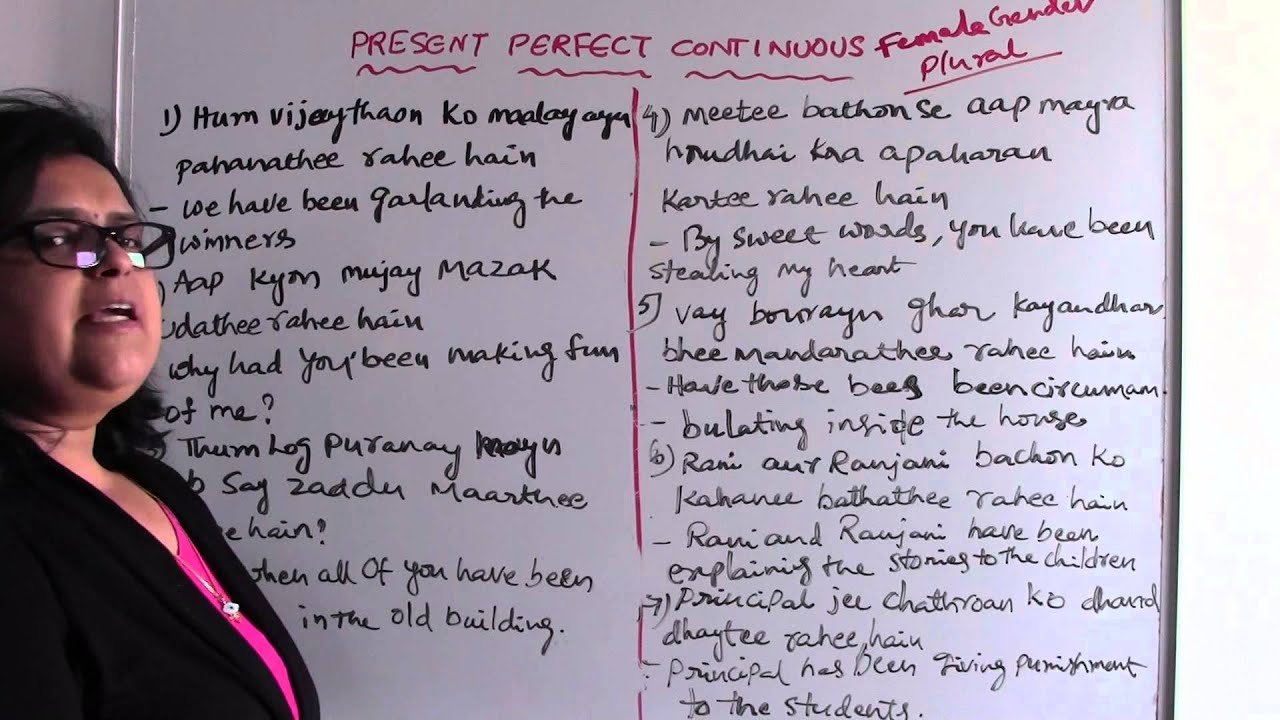 PRESENT PERFECT CONTINUOUS Female Gender
Plural
1) Hum vijaythaon ko maalayayn
pahanathee rahee hain
- we have been garlanding the
winners
) Aap kyon mujay MAZAK
udathee rahee hain
why had you been making fun
of me?
Thum log puranay
Say zaddu maarthee
hain?
when all of you have been
in the old building.
4) Meetee bathon se aap mayra
hrudhai kra apaharan
kartee rahee hain
- By sweet words, you have been
stealing my heart
5) vay bowrayn ghar kayandhar
bhee mandarathee rahee hain
- Have those bees been circumam-
- bulating inside the house
6) Rani aur Ranjani bachon ko
kahanee bathathee rahee hain
- Rani and Ranjani have been
explaining the stories to the children
7) Principal jee chathroan ko dhand
dhaytee rahee hain
- Principal has been giving punishment
to the students.